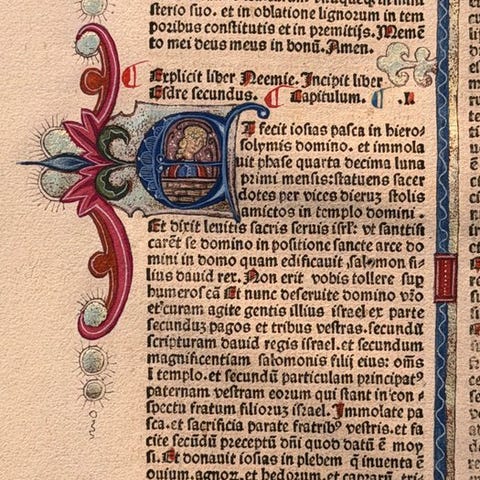 sterio suo. et in oblatione lignorum in tem
poribus constitutis et in premitijs. Memē
to mei deus meus in bonū. Amen.
Explicit liber Neemie. Incipit liber
Esdre secundus. Capitulum. .I.
Et fecit iosias pasca in hiero⸗
solymis domino. et immola
uit phase quarta decima luna
primi mensis: statuens sacer
dotes per vices dierum stolis
amictos in templo domini.
Et dixit leuitis sacris seruis isrl': vt sanctifi
carēt se domino in positione sancte arce do
mini in domo quam edificauit salomon fi⸗
lius dauid rex. Non erit vobis tollere sup
humeros eā Et nunc deseruite domino vr̄o
et curam agite gentis illius israel ex parte
secundum pagos et tribus vestras. secundū
scripturam dauid regis israel. et secundum
magnificentiam salomonis filij eius: om̄s
I templo. et secundū particulam principatꝰ
paternam vestram eorum qui stant in con⸗
spectu fratrum filiorum israel. Immolate pa
sca. et sacrificia parate fratribꝰ vestris. et fa
cite secūdū preceptū dn̄i quod datū ē moy
si. Et donauit iosias in plebem q̄ inuenta ē
ouium. agnorum. et hedorum. et caprarū. tri⸗